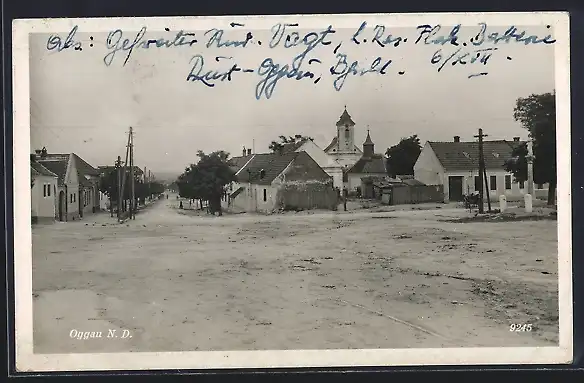 Abs: Gefreiter Ant. Vogt, l. Res. Flak. Batterie
6/XVII.
Rust-Oggau, Bgld.
Oggau N. D.
9245